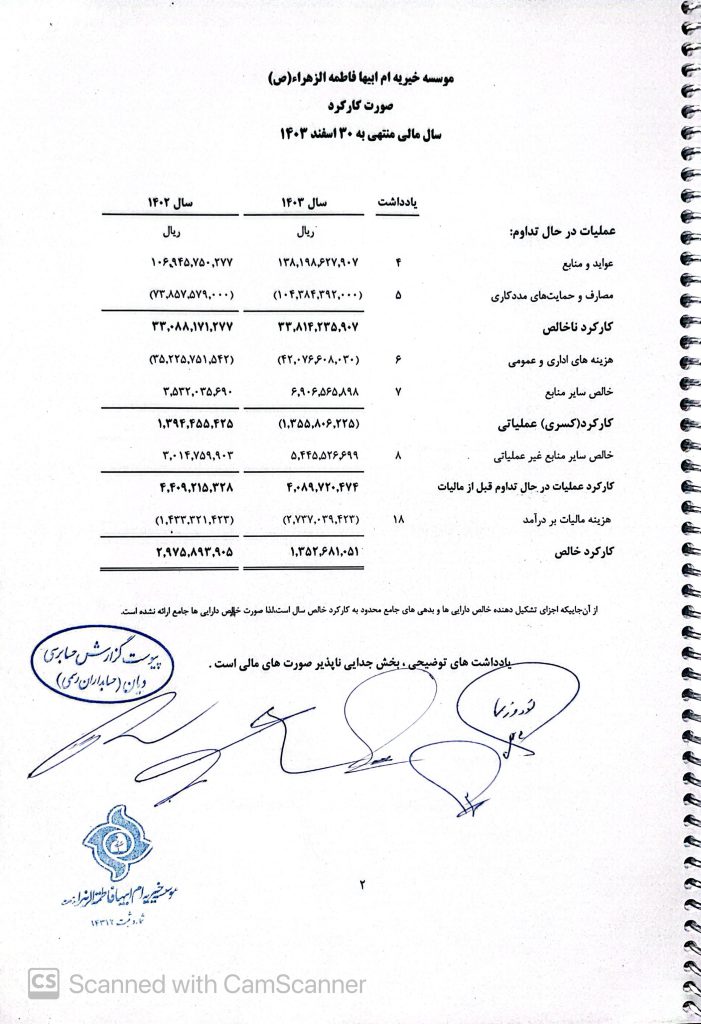 موسسه خیریه ام ابیها فاطمه الزهراء(ص)
صورت کارکرد
سال مالی منتهی به ۳۰ اسفند ۱۴۰۳
یادداشت سال ۱۴۰۳ سال ۱۴۰۲
عملیات در حال تداوم: ریال ریال
عواید و منابع ۴ ۱۳۸,۱۹۸,۶۲۷,۹۰۷ ۱۰۶,۹۴۵,۷۵۰,۲۷۷
مصارف و حمایت‌های مددکاری ۵ (۱۰۴,۳۸۴,۳۹۲,۰۰۰) (۷۳,۸۵۷,۵۷۹,۰۰۰)
کارکرد ناخالص ۳۳,۸۱۴,۲۳۵,۹۰۷ ۳۳,۰۸۸,۱۷۱,۲۷۷
هزینه های اداری و عمومی ۶ (۴۲,۰۷۶,۶۰۸,۰۳۰) (۳۵,۲۲۵,۷۵۱,۵۴۲)
خالص سایر منابع ۷ ۶,۹۰۶,۵۶۵,۸۹۸ ۳,۵۳۲,۰۳۵,۶۹۰
کارکرد(کسری) عملیاتی (۱,۳۵۵,۸۰۶,۲۲۵) ۱,۳۹۴,۴۵۵,۴۲۵
خالص سایر منابع غیر عملیاتی ۸ ۵,۴۴۵,۵۲۶,۶۹۹ ۳,۰۱۴,۷۵۹,۹۰۳
کارکرد عملیات در حال تداوم قبل از مالیات ۴,۰۸۹,۷۲۰,۴۷۴ ۴,۴۰۹,۲۱۵,۳۲۸
هزینه مالیات بر درآمد ۱۸ (۲,۷۳۷,۰۳۹,۴۲۳) (۱,۴۳۳,۳۲۱,۴۲۳)
کارکرد خالص ۱,۳۵۲,۶۸۱,۰۵۱ ۲,۹۷۵,۸۹۳,۹۰۵
از آن‌جاییکه اجزای تشکیل دهنده خالص دارایی ها و بدهی های جامع محدود به کارکرد خالص سال است،لذا صورت خالص دارایی ها جامع ارائه نشده است.
یادداشت های توضیحی ، بخش جدایی ناپذیر صورت های مالی است .
پیوست گزارش حسابرسی
دیان (حسابداران رسمی)
موسسه خیریه ام ابیها فاطمة الزهرا
شماره ثبت
۲
CS Scanned with CamScanner